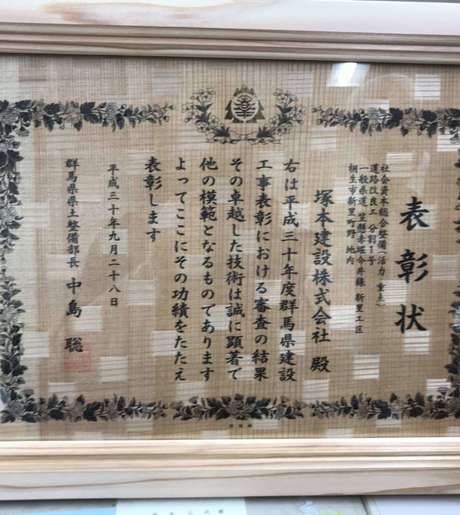 表彰状
社会資本総合整備(活力・重点)
道路改良工 分割1号
一般県道 笠懸赤堀今井線 新里工区
桐生市新里町野 地内
塚本建設株式会社 殿
右は平成三十年度群馬県建設
工事表彰における審査の結果
その卓越した技術は誠に顕著で
他の模範となるものであります
よってここにその功績をたたえ
表彰します
平成三十年九月二十八日
群馬県県土整備部長 中島 聡